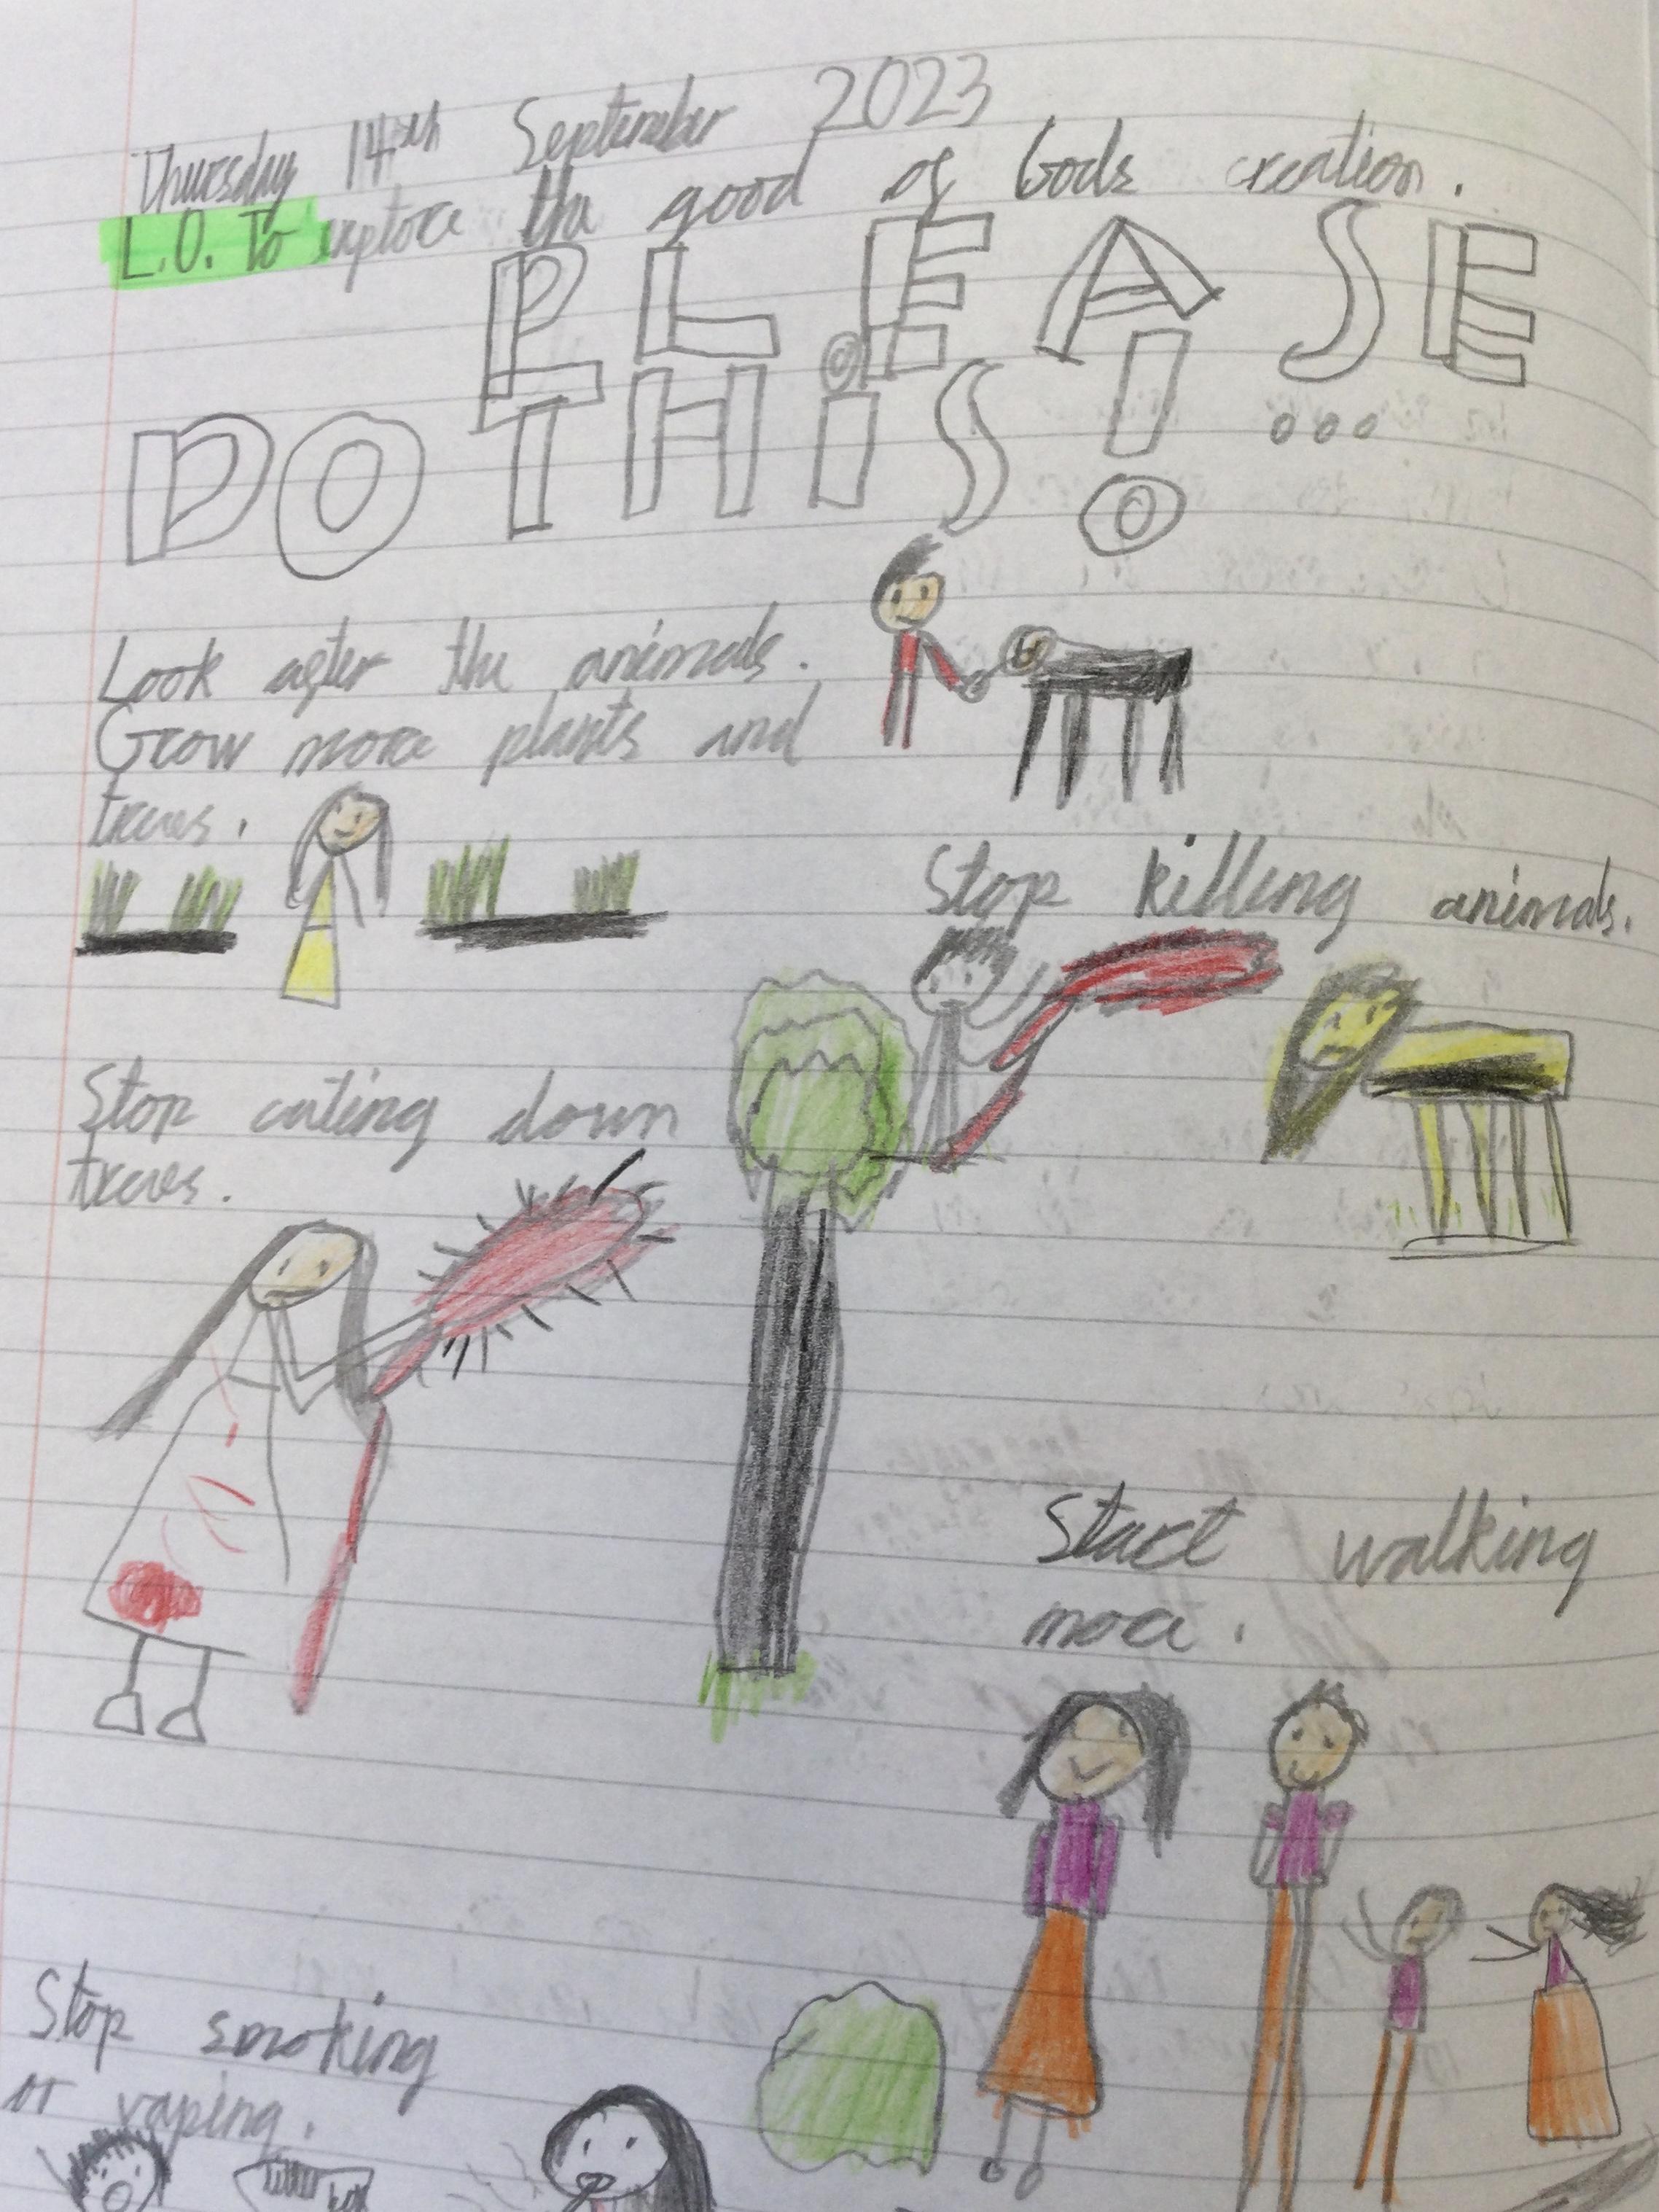 Thursday 14th September 2023
L.O. To explore the good of Gods creation.
PLEASE
DO THiS! ...
Look after the animals.
Grow more plants and
trees.
Stop killing animals.
Stop cuting down
trees.
Start walking
more.
Stop smoking
or vaping.